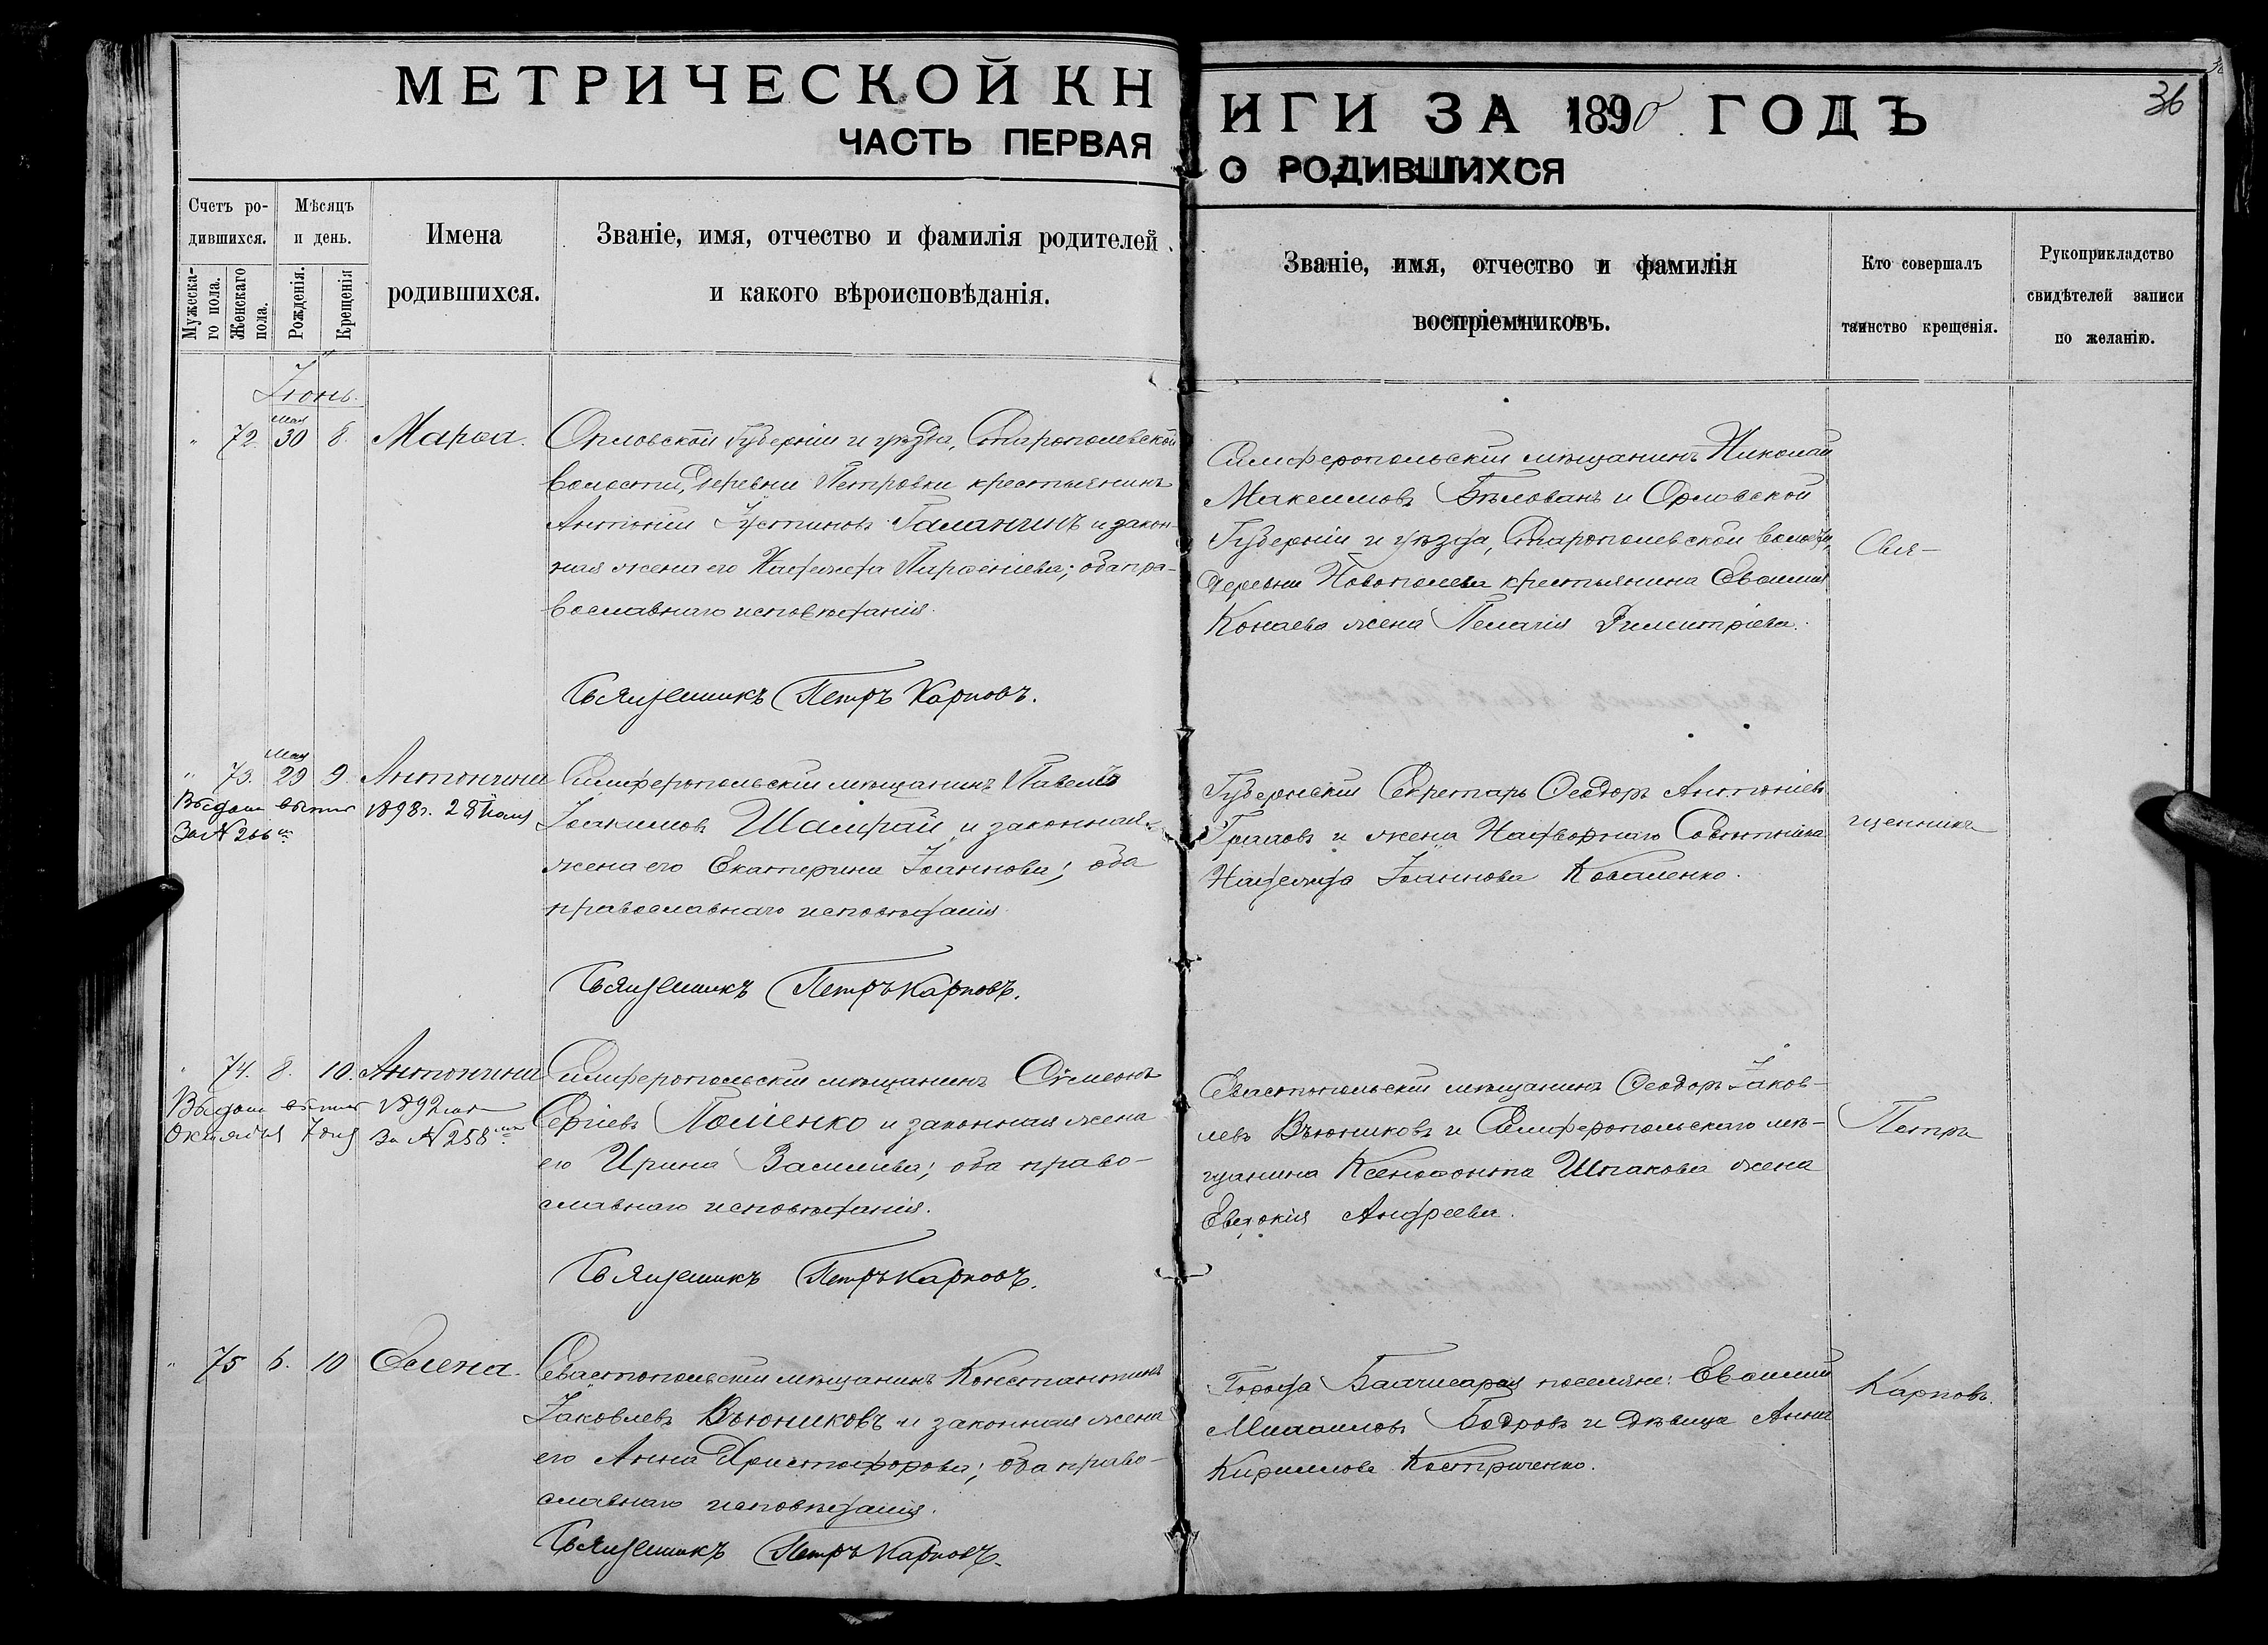 МЕТРИЧЕСКОЙ КНИГИ ЗА 1890 ГОДЪ
36
ЧАСТЬ ПЕРВАЯ О РОДИВШИХСЯ
Счетъ ро-
дившихся.
Мужеска-
го пола.
Женскаго
пола.
Мѣсяцъ
и день.
Рожденія.
Крещенія
Имена
родившихся.
Званіе, имя, отчество и фамилія родителей
и какого вѣроисповѣданія.
Званіе, имя, отчество и фамилія
воспріемниковъ.
Кто совершалъ
таинство крещенія.
Рукоприкладство
свидѣтелей записи
по желанію.
Іюнь.
" 72 Мая 30 8. Марѳа.
Орловской Губерніи и уѣзда, Старопольевской
волости, деревни Петровки крестьянинъ
Антоній Іустиновъ Галанчинъ и закон-
ная жена его Надежда Парѳеніева; оба пра-
вославнаго исповѣданія.
Священникъ Петръ Карповъ.
Симферопольскій мѣщанинъ Николай
Максимовъ Бѣлованъ и Орловской
Губерніи и уѣзда, Старопольевской волости,
деревни крестьянина Евѳимія
Конаева жена Пелагія Димитріева.
Свя-
" 73. Мая 29 9. Антонина
Выдана выпись 1898 г. 28 Іюля
За N 206
Симферопольскій мѣщанинъ Павелъ
Іоакимовъ Шалфай и законная
жена его Екатерина Іоаннова; оба
православнаго исповѣданія
Священникъ Петръ Карповъ.
Губернскій Секретарь Ѳеодоръ Антоніевъ
и жена Надворнаго Совѣтника
Надежда Іоаннова Коваленко.
щенникъ
" 74. 8. 10. Антонина
Выдана выпись 1892 года
Октября 7 дня За N 258
Симферопольскій мѣщанинъ Сѵмеонъ
Сергіевъ Поліенко и законная жена
его Ирина Василіева; оба право-
славнаго исповѣданія.
Священникъ Петръ Карповъ.
Севастопольскій мѣщанинъ Ѳеодоръ Іаков-
левъ Вьюниковъ и Симферопольскаго мѣ-
щанина Ксенофонта Шпакова жена
Евдокія Андреева.
Петръ
" 75 6. 10 Елена.
Севастопольскій мѣщанинъ Константинъ
Іаковлевъ Вьюниковъ и законная жена
его Анна Христофорова; оба право-
славнаго исповѣданія.
Священникъ Петръ Карповъ.
Города Бахчисарая поселяне: Евѳимій
Михаиловъ Бодровъ и дѣвица Анна
Кириллова Костриченко.
Карповъ.